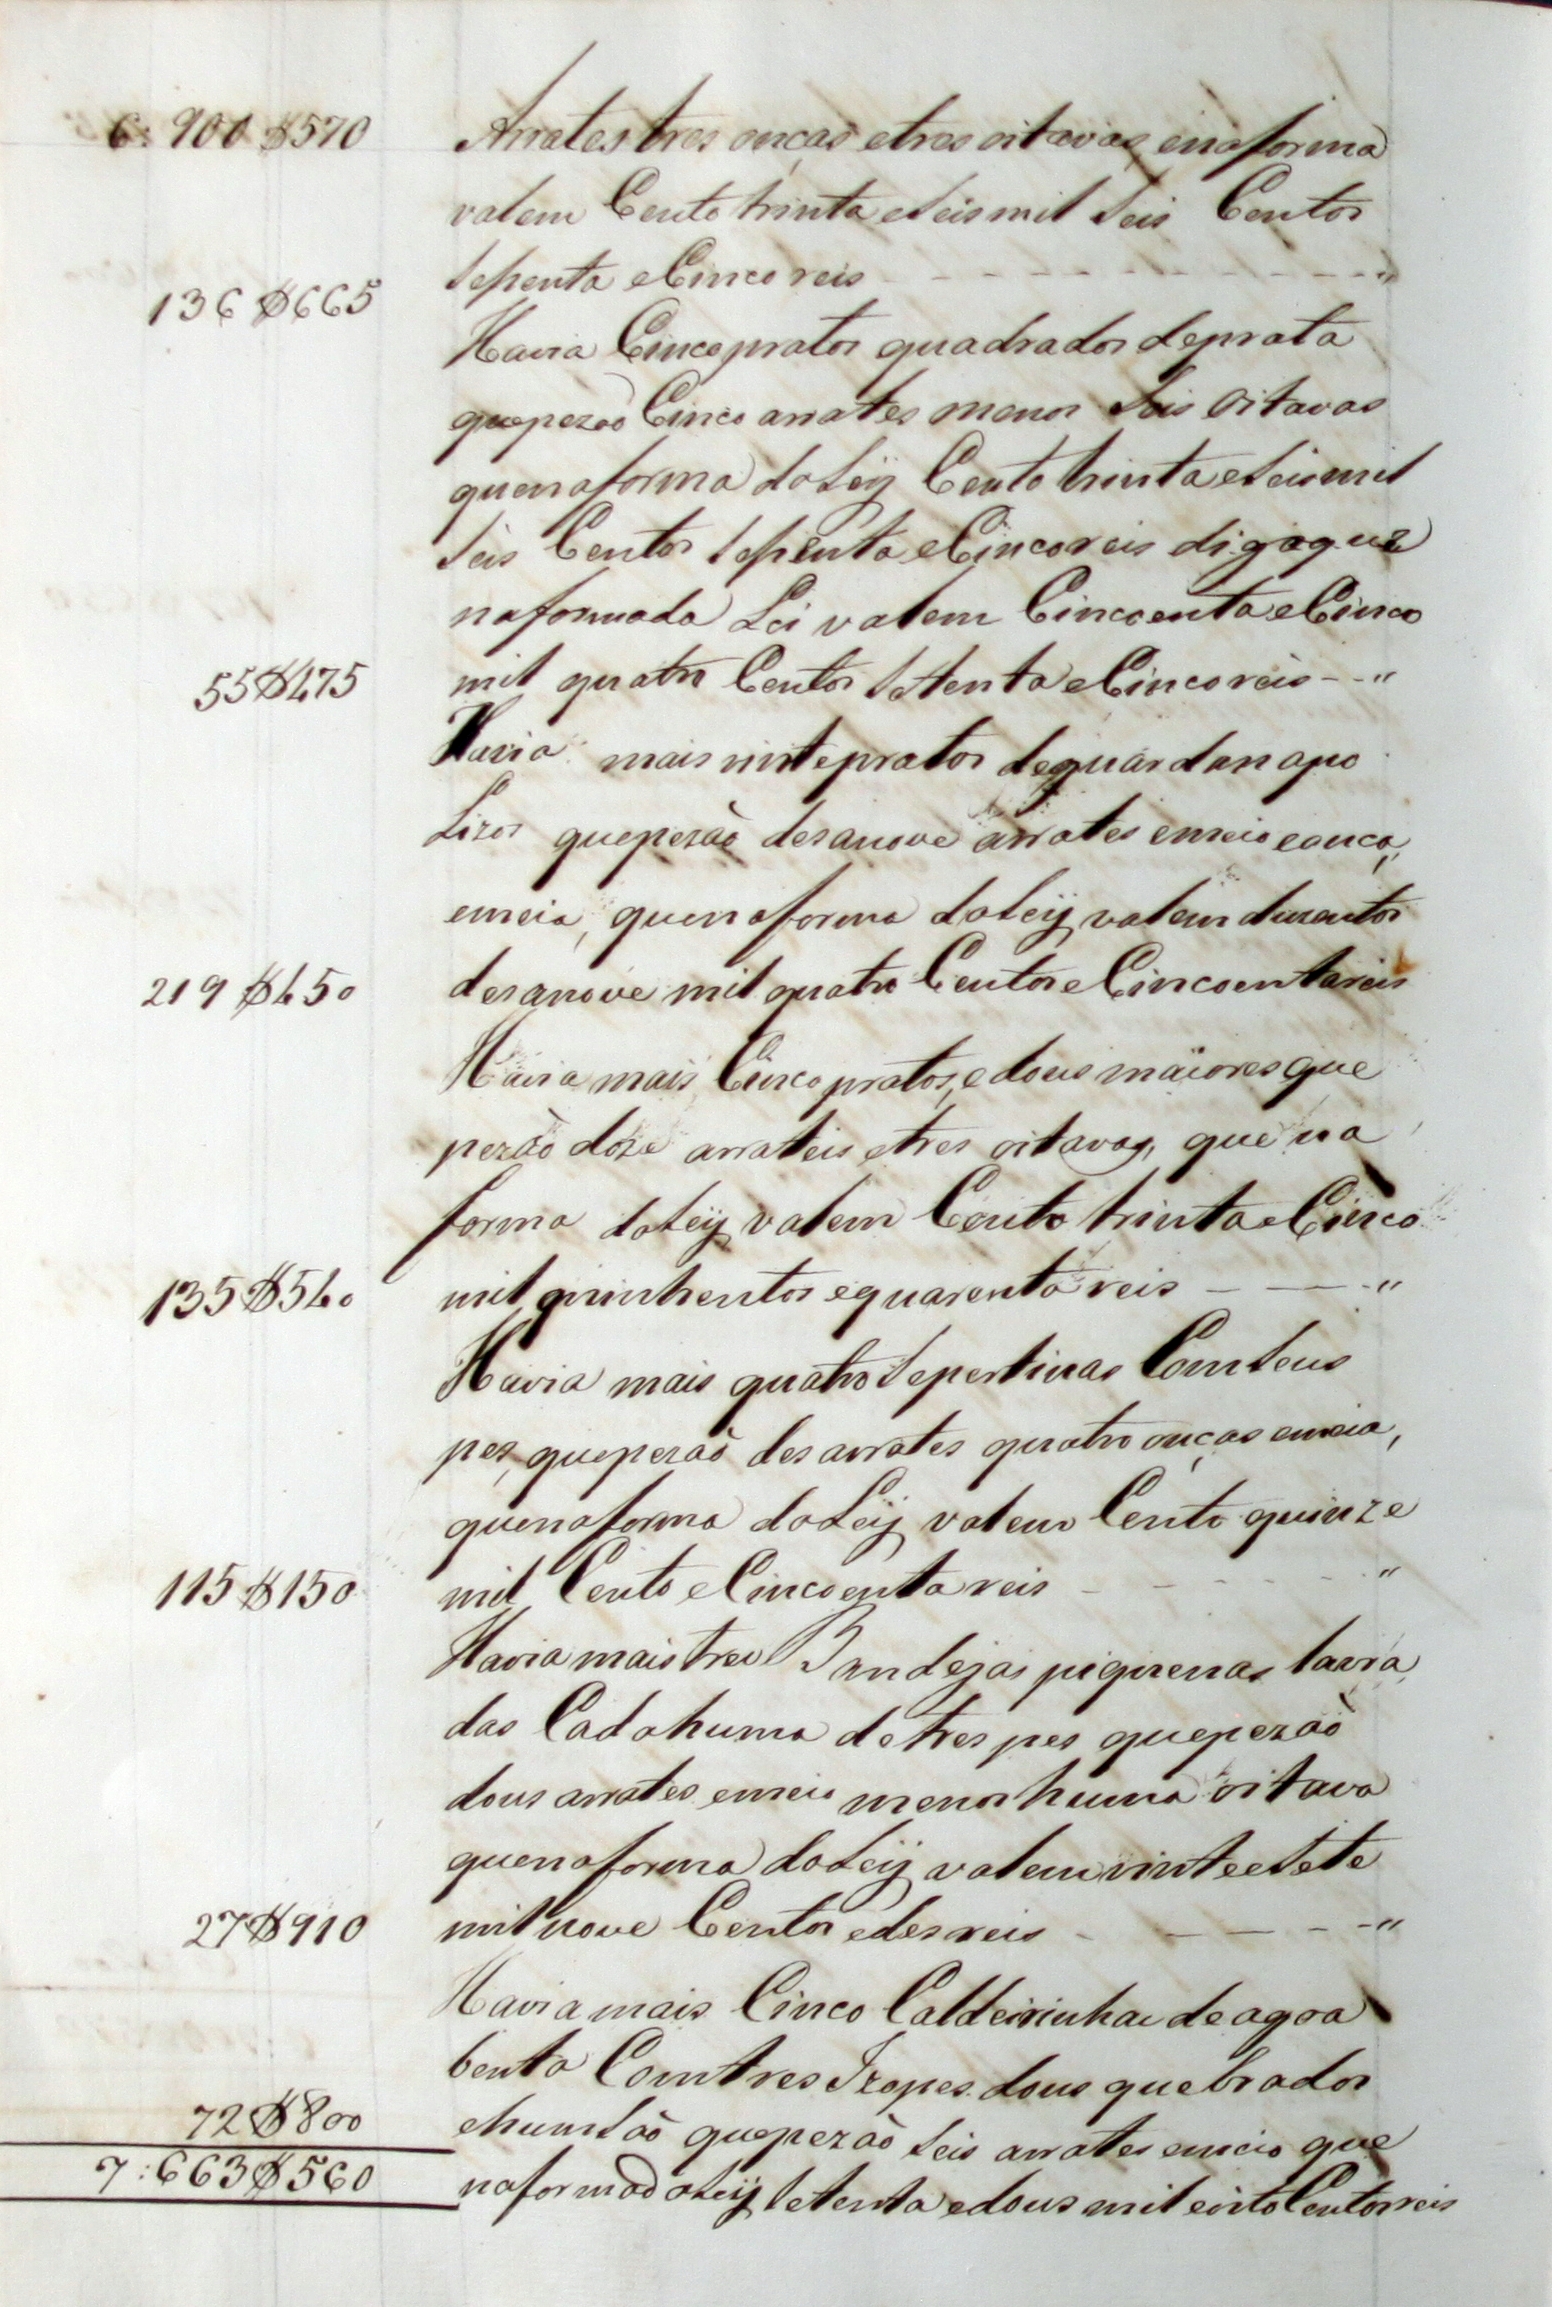 6: 900$570 Arrates tres onças etres oitavas, enaforma
valem Cento trinta eseis mil seis Centos
136$665 sessenta eCinco reis - - - - - - - - - - "
Havia Cinco pratos quadrados deprata
quepezaõ Cinco arrates menos seis Oitavas
quenaforma daLeÿ Cento trinta eseis mil
seis Centos sessenta eCinco reis digo que
naformada Lei valem Cincoenta eCinco
55$475 mil quatro Centos settenta eCinco reis - - "
Havia mais vinte pratos deguardanapo
Lizos quepezaõ desanove arrates emeio eonça,
emeia, quenaforma daLeÿ valem duzentos
219$450 desanove mil quatro Centos eCincoenta reis
Havia mais Cinco pratos, e dous maiores que
pezaõ doze arrateis etres oitavas, que na
forma daLeÿ valem Cento trinta eCinco
135$540 mil quinhentos equarenta reis - - - "
Havia mais quatro Sepertinas Com seus
pes, quepezaõ des arrates quatro onças emeia,
quenaforma daLeÿ valem Cento quinze
115$150 mil Cento eCincoenta reis - - - - - - "
Havia mais tres Bandejas piquenas lavra
das Cada huma de tres pes quepezaõ
dous arrates emeio menos huma oitava
quenaforma daLeÿ valem vinte esete
27$910 mil nove Centos edes reis - - - - - "
Havia mais Cinco Caldeirinhas de agoa
benta Com tres Izopes dous quebrados
72$800 ehum saõ quepezaõ seis arrates emeio que
7:663$560 naforma daLeÿ setenta edous mil eoito Centos reis